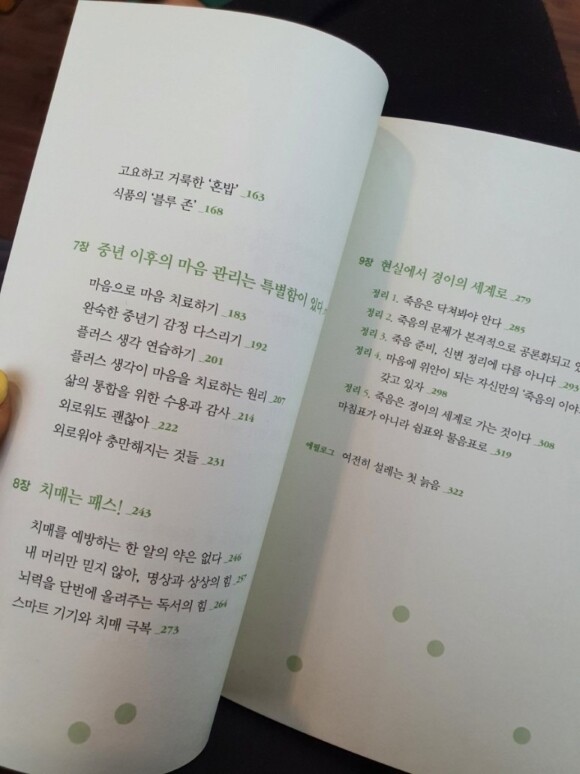 고요하고 거룩한 '혼밥' _163
식품의 '블루 존' _168
7장 중년 이후의 마음 관리는 특별함이 있다
마음으로 마음 치료하기 _183
완숙한 중년기 감정 다스리기 _192
플러스 생각 연습하기 _201
플러스 생각이 마음을 치료하는 원리 _207
삶의 통합을 위한 수용과 감사 _214
외로워도 괜찮아 _222
외로워야 충만해지는 것들 _231
8장 치매는 패스! _243
치매를 예방하는 한 알의 약은 없다 _246
내 머리만 믿지 않아, 명상과 상상의 힘 _257
뇌력을 단번에 올려주는 독서의 힘 _264
스마트 기기와 치매 극복 _273
9장 현실에서 경이의 세계로 _279
정리 1. 죽음은 닥쳐봐야 안다 _285
정리 2. 죽음의 문제가 본격적으로 공론화되고
정리 3. 죽음 준비, 신변 정리에 다름 아니다 _293
정리 4. 마음에 위안이 되는 자신만의 '죽음의 이야
갖고 있자 _298
정리 5. 죽음은 경이의 세계로 가는 것이다 _308
마침표가 아니라 쉼표와 물음표로 _319
에필로그 여전히 설레는 첫 늙음 _322